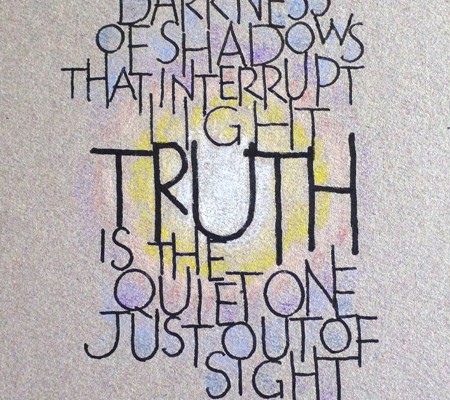 DARKNESS
OF SHADOWS
THAT INTERRUPT
LIGHT
TRUTH
IS THE
QUIET ONE
JUST OUT OF
SIGHT